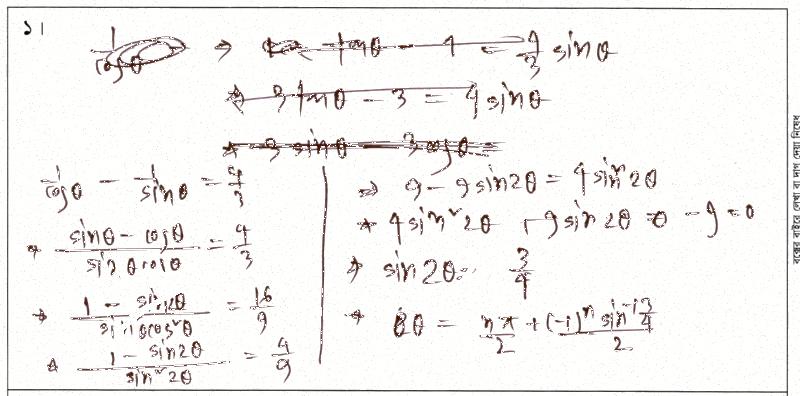 ১।
1/cosθ ⇒ tanθ - 1 = 4/3 sinθ
⇒ 3tanθ - 3 = 4sinθ
⇒ 3 sinθ 3cosθ =
1/cosθ - 1/sinθ = 4/3
⇒ (sinθ - cosθ)/(sinθcosθ) = 4/3
⇒ (1 - sin2θ)/(sin²θcos²θ) = 16/9
⇒ (1 - sin2θ)/(sin²2θ) = 4/9
⇒ 9 - 9sin2θ = 4sin²2θ
⇒ 4sin²2θ + 9sin2θ - 9 = 0
⇒ sin2θ = 3/4
⇒ θ = nπ/2 + (-1)ⁿ sin⁻¹ 3/4 / 2
বক্সের বাইরে লেখা বা দাগ দেয়া নিষেধ